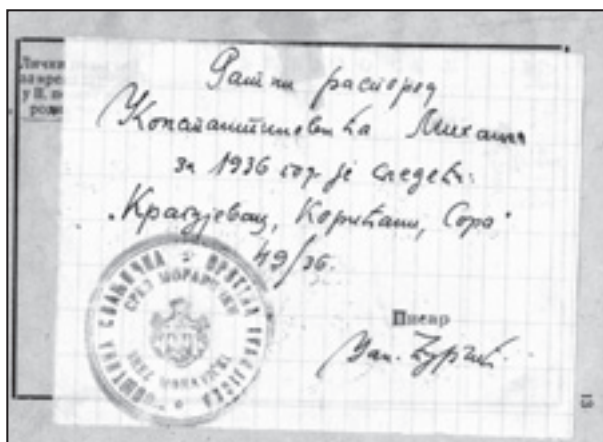 Лични
за вре
у II. по
родо
Ратни распоред
Константиновића Михаила
за 1936 год. је следећи:
„Крагујевац, Корићани, Гора“
49/36.
ОПШТИНА
СРЕЗ МОРАВСКИ
Писар
13